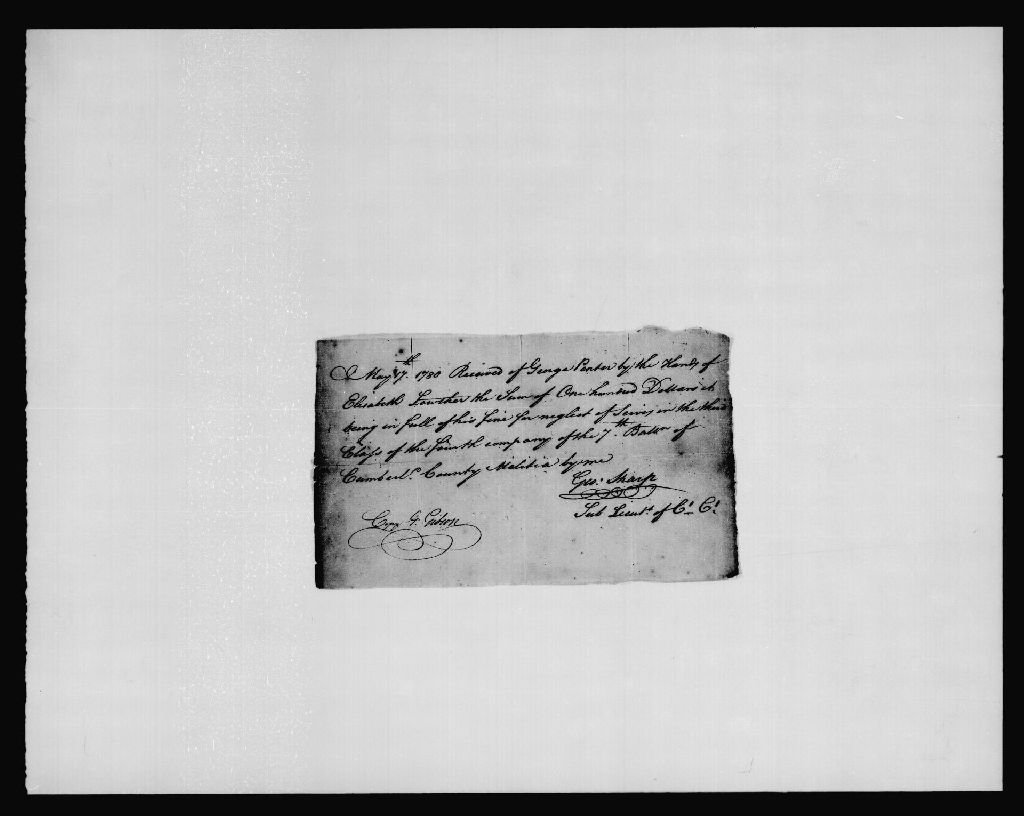 May 17th. 1780 Received of George Porter by the Hands of
Elisabeth Lowther the Sum of One hundred Dollars it
being in full of his fine for neglect of Serves in the third
Class of the fourth company of the 7th. Battn of
Cumberld. County Malitia by me
Geo: Sharp
Sub Lieut. of C. C.